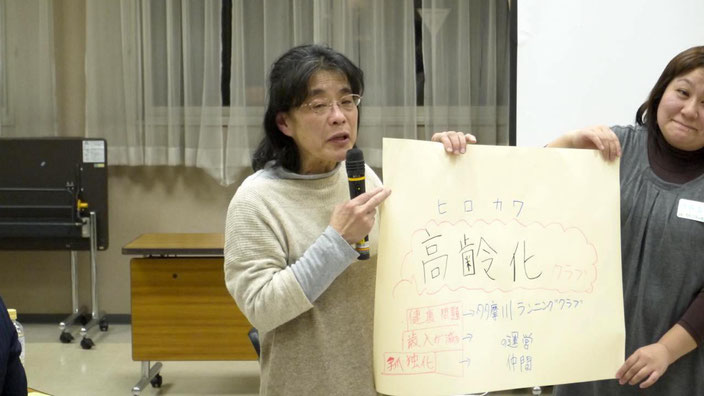 ヒロカワ
高齢化 クラブ
健康問題 → 多摩川ランニングクラブ
歳入が減 → 運営
孤独化 → 仲間